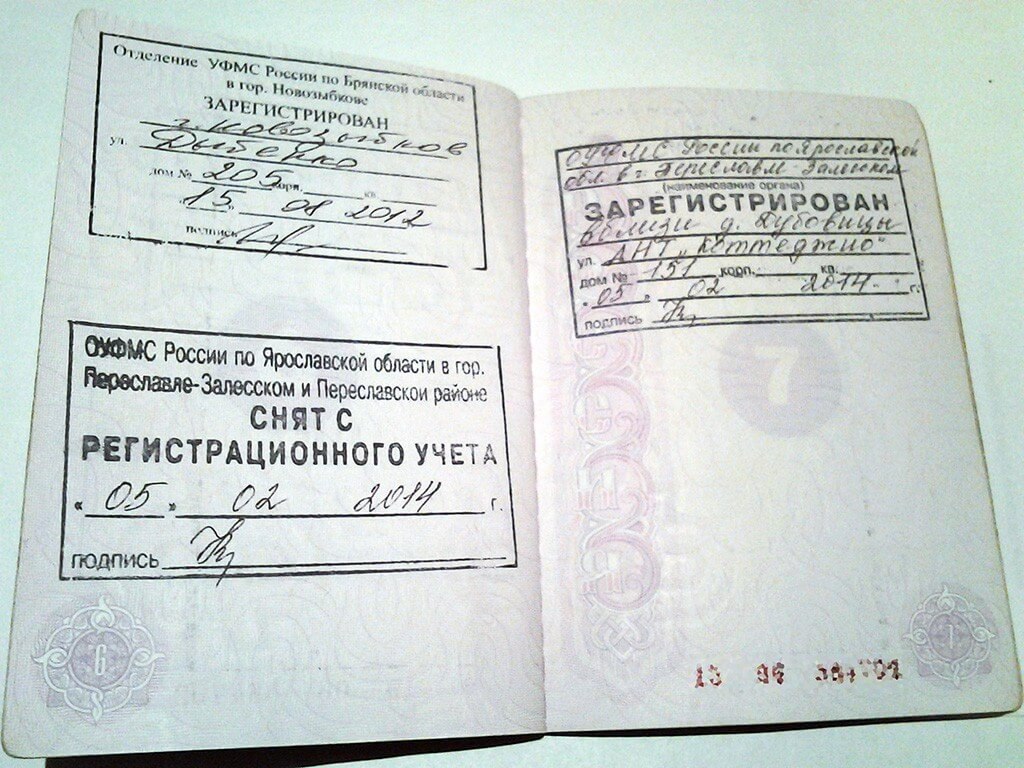 Отделение УФМС России по Брянской области
в гор. Новозыбкове
ЗАРЕГИСТРИРОВАН
г. Новозыбков
ул. Дыбенко
дом № 205 корп. кв.
"15" 08 2012
подпись
ОУФМС России по Ярославской области в гор.
Переславле-Залесском и Переславском районе
СНЯТ С
РЕГИСТРАЦИОННОГО УЧЕТА
« 05 » 02 2014 г.
подпись
6
ОУФМС России по Ярославской
обл. в г. Переславле-Залесском
(наименование органа)
ЗАРЕГИСТРИРОВАН
вблизи д. Дубовицы
ул. ДНТ „Коттеджно"
дом № 151 корп. - кв.
" 05 " 02 2014 г.
подпись
7